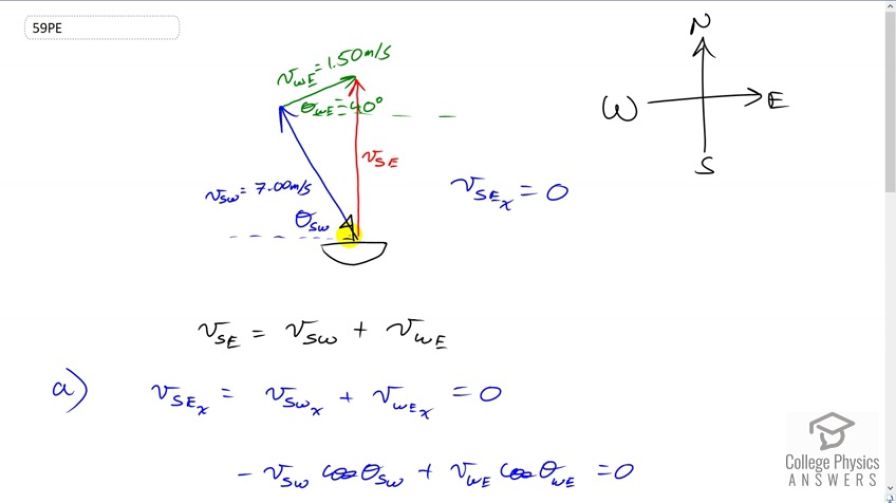 59PE
N
v_WE = 1.50 m/s
θ_WE = 40°
W E
S
v_SE
v_SW = 7.00 m/s
v_SEx = 0
θ_SW
v_SE = v_SW + v_WE
a) v_SEx = v_SWx + v_WEx = 0
- v_SW cos θ_SW + v_WE cos θ_WE = 0
College Physics
ANSWERS